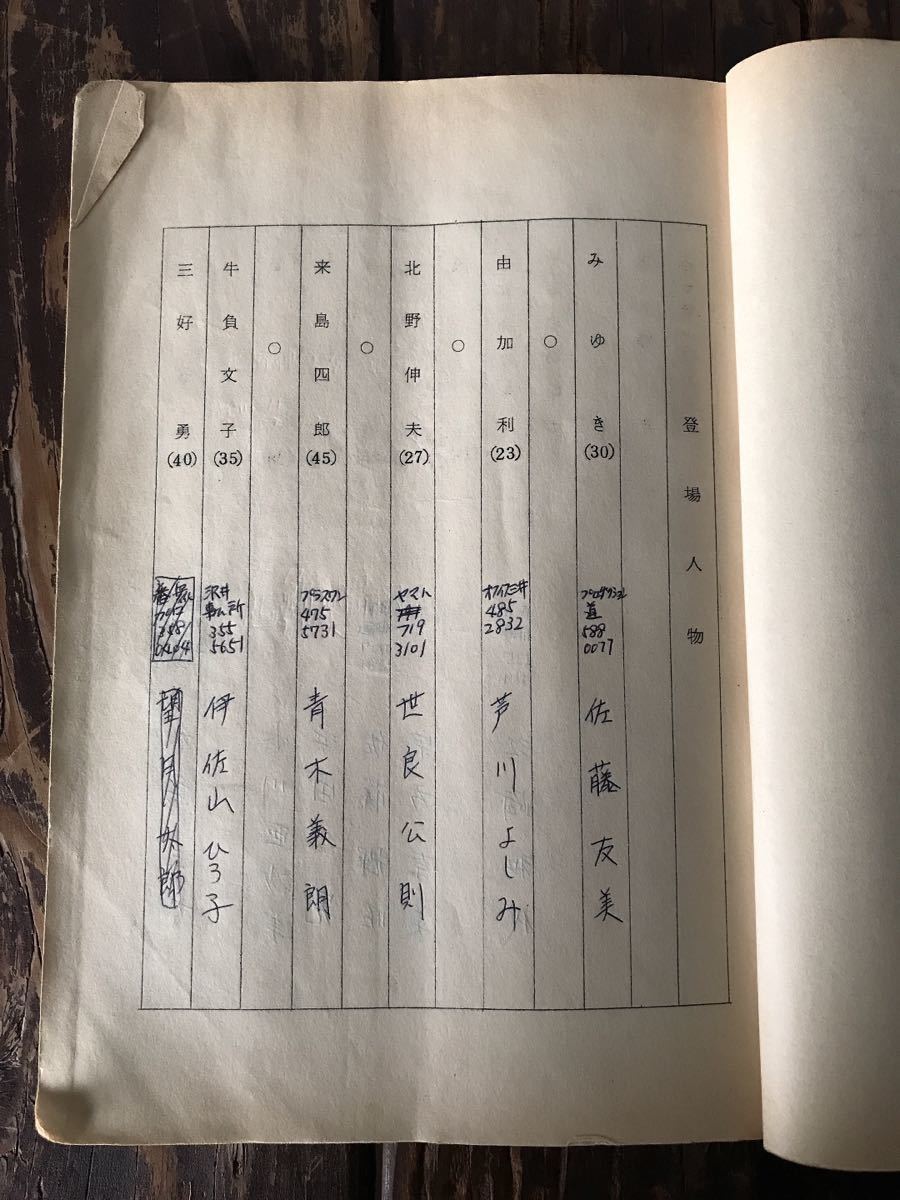 登場人物
みゆき(30)
プロダクション
道
588
0077
佐藤友美
○
由加利(23)
オフィス三井
485
2832
芦川よしみ
○
北野伸夫(27)
ヤマト
719
3101
世良公則
○
来島四郎(45)
プラスワン
475
5731
青木義朗
○
牛負文子(35)
沢井
事ム所
355
5651
伊佐山ひろ子
三好勇(40)
3581
0404